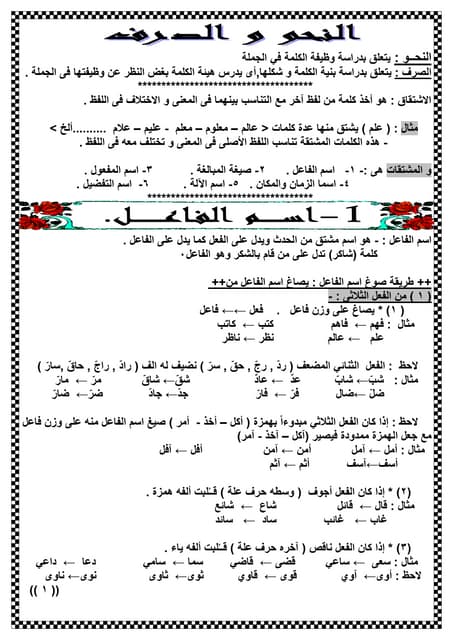 النحو و الصرف
النحـو : يتعلق بدراسة وظيفة الكلمة في الجملة
الصرف : يتعلق بدراسة بنية الكلمة و شكلها,أى يدرس هيئة الكلمة بغض النظر عن وظيفتها فى الجملة .
*************************************
الاشتقاق : هو أخذ كلمة من لفظ آخر مع التناسب بينهما فى المعنى و الاختلاف فى اللفظ .
مثال : ( علم ) يشتق منها عدة كلمات < عالم – معلوم – معلم - عليم – علام ..........ألخ >
- هذه الكلمات المشتقة تناسب اللفظ الأصلى فى المعنى و تختلف معه فى اللفظ .
و المشتقات هى :- ١- اسم الفاعل . ٢- صيغة المبالغة . ٣- اسم المفعول .
٤- اسما الزمان والمكان . ٥- اسم الآلة . ٦- اسم التفضيل .
*************************************
1-اسـم الفاعـل.
اسم الفاعل : - هو اسم مشتق من الحدث ويدل على الفعل كما يدل على الفاعل .
كلمة (شاكر) تدل على من قام بالشكر وهو الفاعل٠
++ طريقة صوغ اسم الفاعل : يصاغ اسم الفاعل من++
( ١ ) من الفعل الثلاثى : -
(١) * يصاغ على وزن فاعل . فعل ←← فاعل
مثال : فهم ← فاهم كتب ← كاتب
علم ← عالم نظر ← ناظر
لاحظ : الفعل الثنائي المضعف ( ردّ , رجّ , حقّ , سرّ ) نضيف له الف ( رادّ , راجّ , حاقّ ,سارّ )
مثال : شبّ← شابّ عدّ ← عادّ شقّ← شاقّ مرّ ← مارّ
ضلّ←ضال فرّ ← فارّ جدّ← جادّ ضرّ← ضارّ
لاحظ : إذا كان الفعل الثلاثي مبدوءاً بهمزة ( أكل – أخذ - أمر ) صيغ اسم الفاعل منه على وزن فاعل
مع جعل الهمزة ممدودة فيصير (آكل – آخذ - آمر)
مثال : أمل ← آمل أمن ← آمن أفل ← آفل
أسف←آسف أثم ← آثم
(٢) * إذا كان الفعل أجوف ( وسطه حرف علة ) قـُلبت ألفه همزة .
مثال : قال ← قائل شاع ← شائع
غاب ← غائب ساد ← سائد
(٣) * إذا كان الفعل ناقص ( آخره حرف علة ) قـُلبت ألفه ياء .
مثال : سعى ← ساعي قضى ← قاضي سما ← سامي دعا ← داعي
لاحظ : أوى← أوي قوى ← قاوي ثوى ← ثاوى نوى← ناوى
(( ١ ))